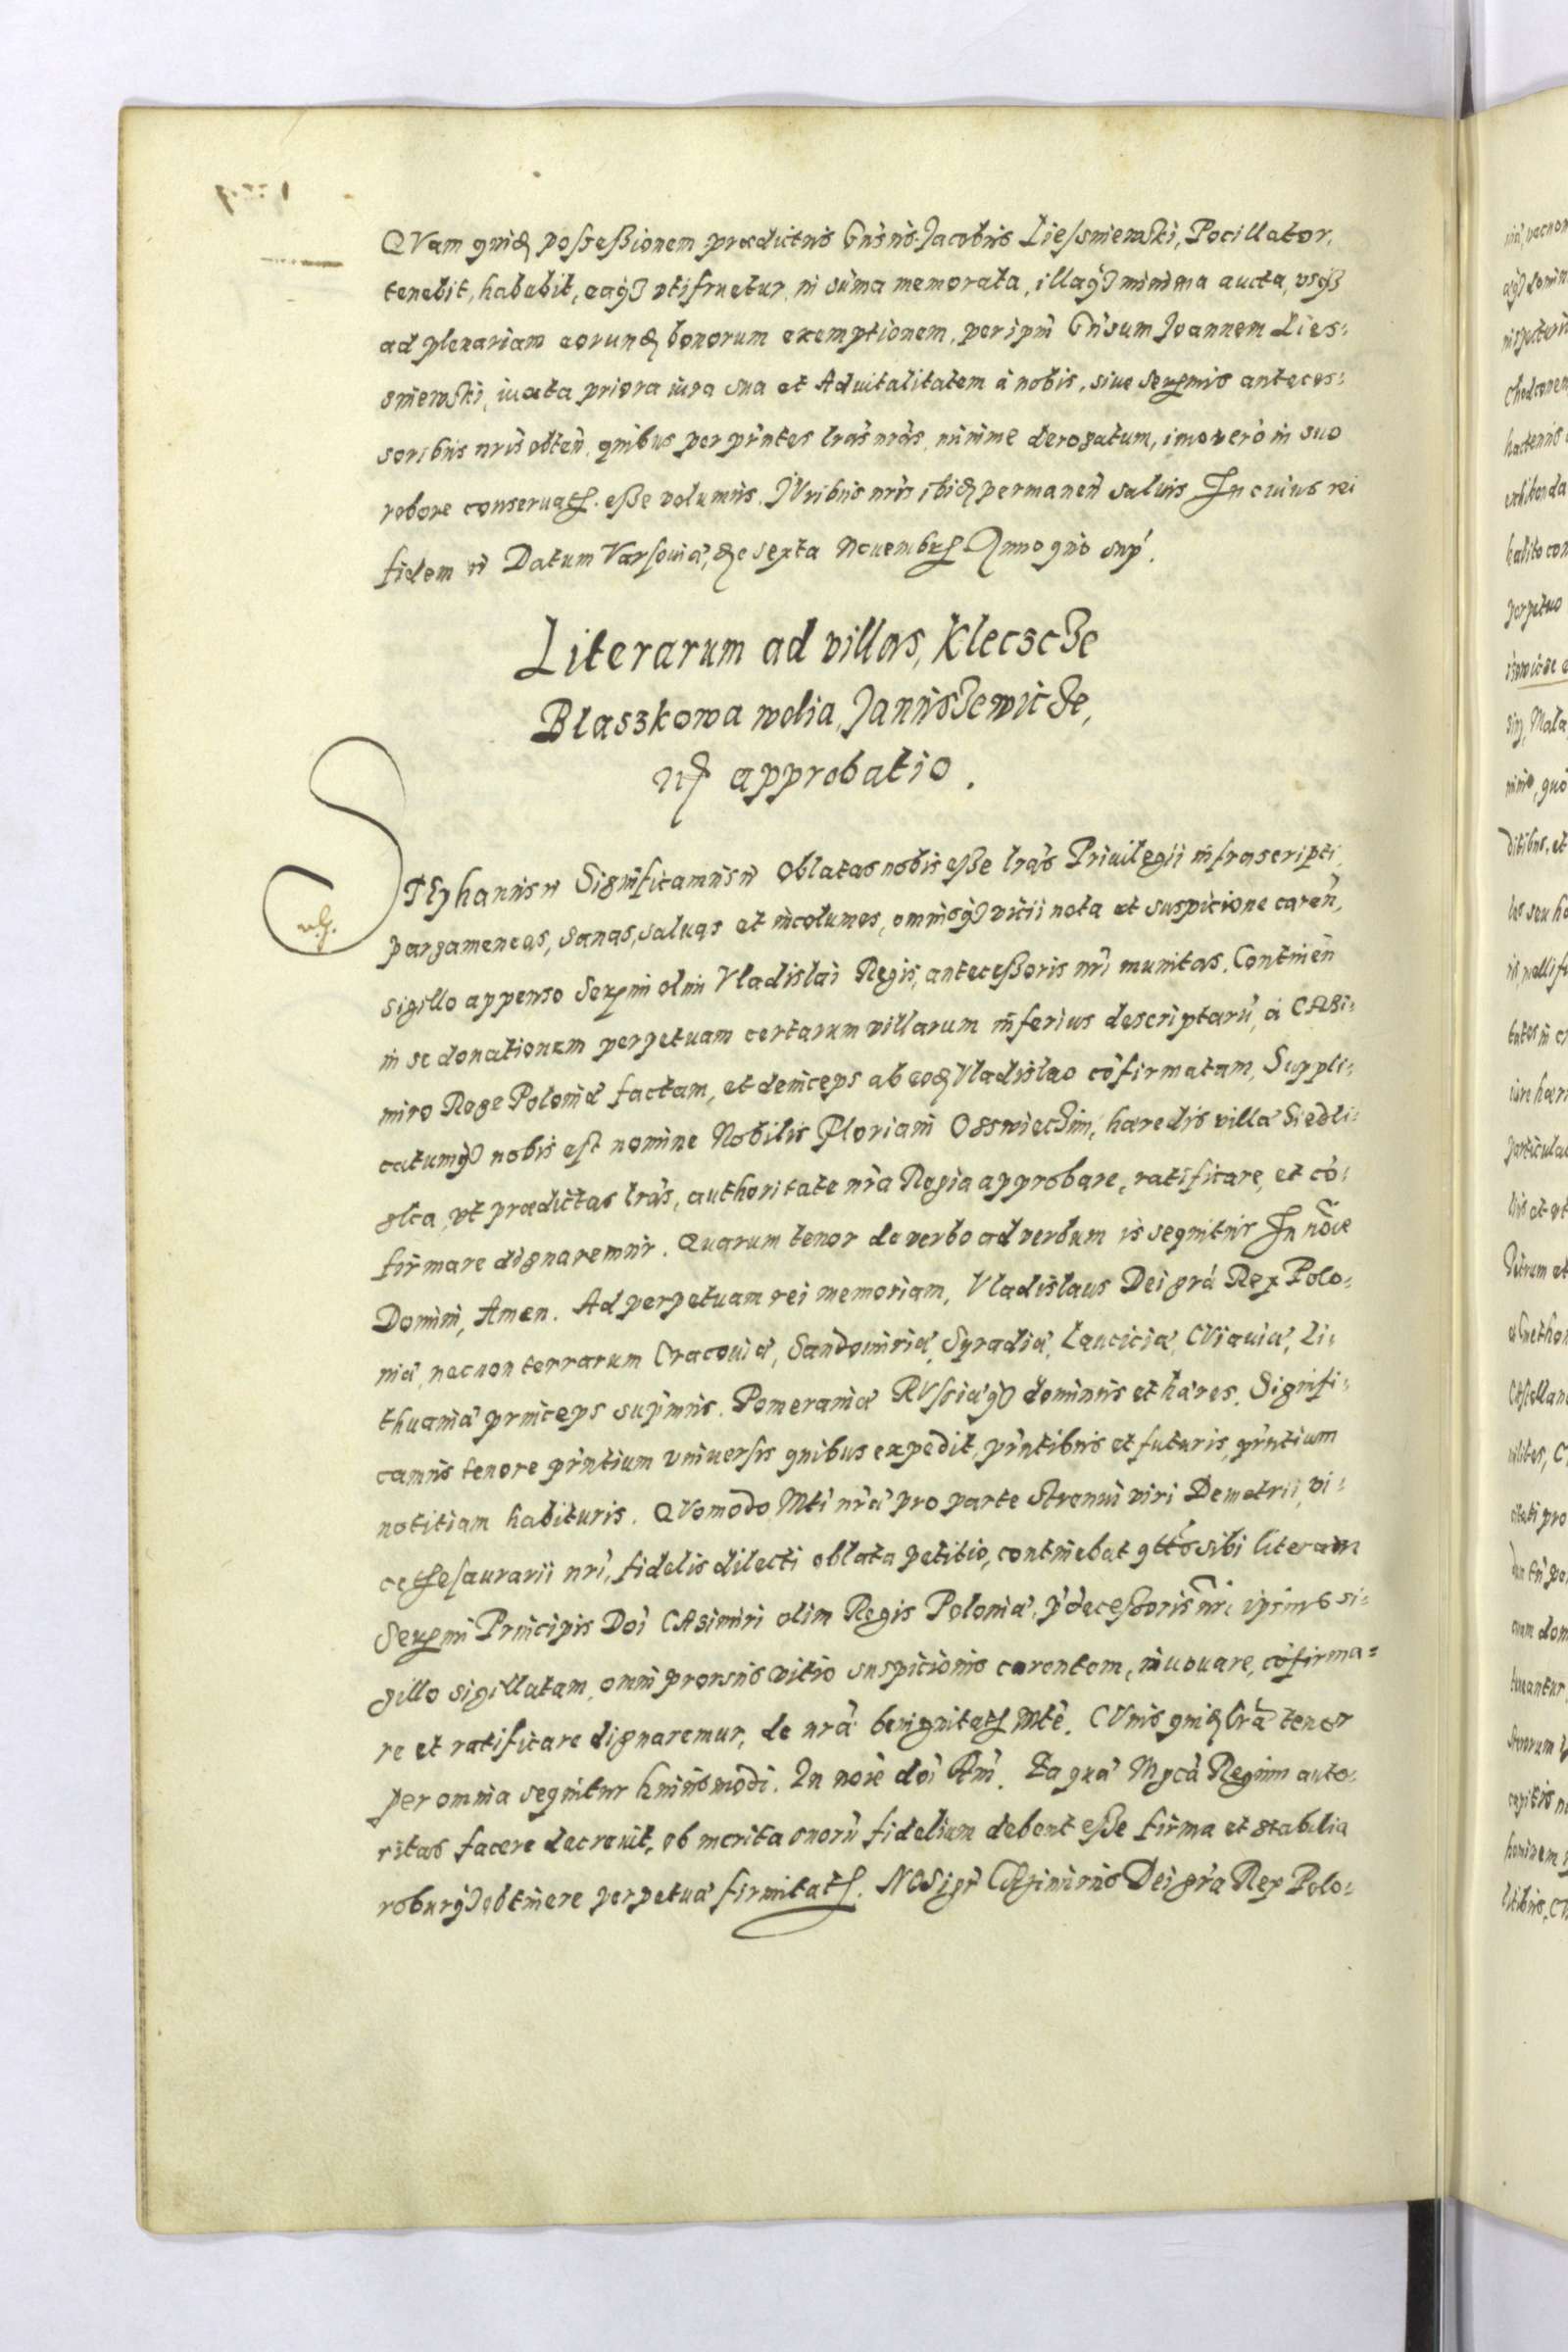 QVam quid possessionem praedictus Gnsus Jacobus Liesniewski, Pocillator,
tenebit, habebit, eaq3 vtifruetur, in suma memorata, illaq3 minima aucta, vsq3
ad plenariam eorund bonorum exemptionem, per ipm Gnsum Joannem Lies:
sniewski, iuxta priora iura sua et Aduitalitatem à nobis, siue Sermis anteces:
soribus nris obten, quibus per pntes lras nras, minime derogatum, imo verò in suo
robore conseruat. esse volumus. IVribus nris ibid permanen saluis In cuius rei
fidem Datum Varsouiae, die sexta Nouembr Anno quo sup.
Literarum ad villas, Kleczcze
Blaszkowa wolia, Januszewicze,
approbatio.
STEphanus Significamus Oblatas nobis esse lras Priuilegii infrascripti,
pargameneas, sanas, saluas et incolumes, omnisq3 vicii nota et suspicione caren,
sigillo appenso Sermi olim Vladislai Regis, antecessoris nri munitas. Continen
in se donationem perpetuam certarum villarum inferius descriptarū, à CASi:
miro Rege Poloniae factam, et deinceps ab eod Vladislao cōfirmatam, Suppli:
catumq3 nobis est nomine Nobilis Floriani Osswieczim, haeredis villae Siedli:
slca, vt praedictas lras, authoritate nra Regia approbare, ratificare, et cō:
firmare dignaremur. Quarum tenor de verbo ad verbum is sequitur In nōie
Domini, Amen. Ad perpetuam rei memoriam, Vladislaus Dei gra Rex Polo:
niae, necnon terrarum Cracouiae, Sandomiriae, Syradiae, Lanciciae, CViauiae, Li:
thuaniae princeps supmus. Pomeraniae RVssiaeq3 dominus et haeres. Signifi:
camus tenore pntium vniuersis quibus expedit, pntibus et futuris, pntium
notitiam habituris. QVomodo Mti nrae pro parte strenui viri Demetrii, vi:
cethesaurarii nri, fidelis dilecti oblata petitio, continebat qttus sibi literam
Sermi Principis Doi CASimiri olim Regis Poloniae, pdecessoris nri, ipsius si:
gillo sigillatam, omni prorsus vitio suspicionis carentem, innouare, cōfirma=
re et ratificare dignaremur, de nra benignitat Mte. CVius quid lrae tenor
per omnia sequitur huiusmodi. In noie doi Am. Ea quae Mycà Regum auto:
ritas facere decreuit, ob merita suorū fidelium debent esse firma et stabilia
roburq3 obtinere perpetuae firmitat. NOS igr CASimirus Dei gra Rex Polo: